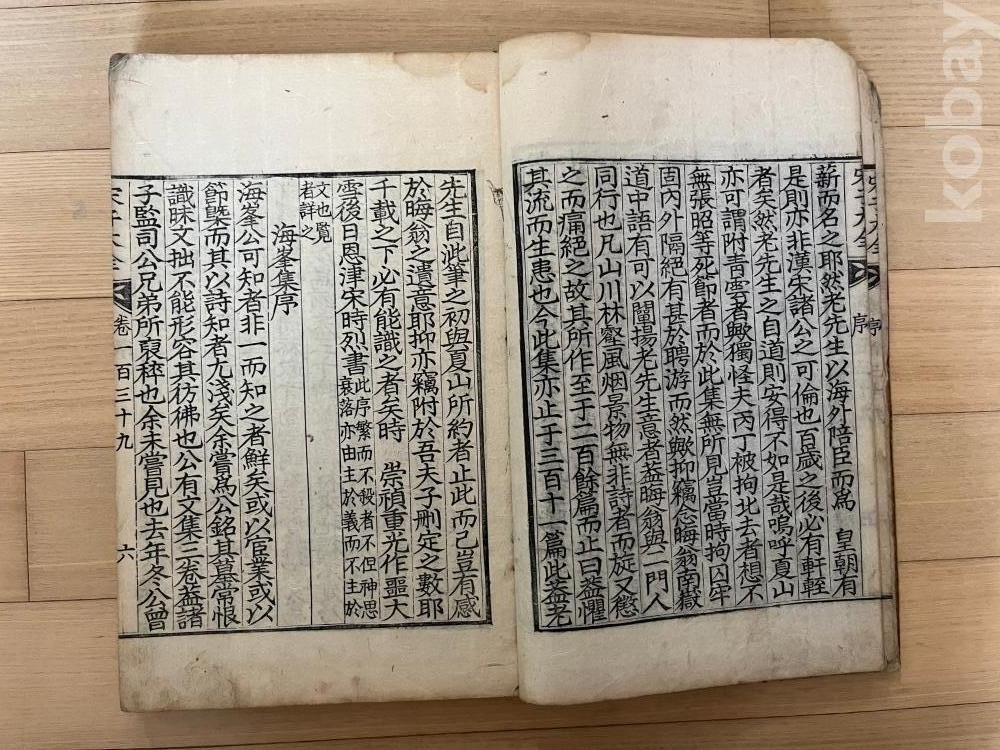 薪而名之耶然老先生以海外陪臣而爲 皇朝有
是則亦非漢宋諸公之可倫也百歲之後必有軒輊
者矣然老先生之自道則安得不如是哉嗚呼夏山
亦可謂附青雲者歟獨怪夫丙丁被拘北去者想不
無張昭等死節者而於此集無所見豈當時拘囚牢
固内外隔絕有甚於聘游而然歟抑竊念晦翁南嶽
道中語有可以闡揚老先生意者蓋晦翁與二門人
同行也凡山川林壑風烟景物無非詩者而旋又懲
之而痛絕之故其所作至于二百餘篇而止曰蓋懼
其流而生患也今此集亦止于三百十一篇此蓋老
先生自泚筆之初與夏山所約者止此而已豈有感
於晦翁之遺意耶抑亦竊附於吾夫子刪定之數耶
千載之下必有能識之者矣時 崇禎重光作噩大
雪後日恩津宋時烈書 此序繁而不殺者不但神思
衰落亦由主於義而不主於
文也覽
者詳之
海峯集序
海峯公可知者非一而知之者鮮矣或以官業或以
節槩而其以詩知者尤淺矣余嘗爲公銘其墓常恨
識昧文拙不能形容其彷彿也公有文集三卷蓋諸
子監司公兄弟所裒稡也余未嘗見也去年冬公曾
卷一百三十九
六
序
kobay